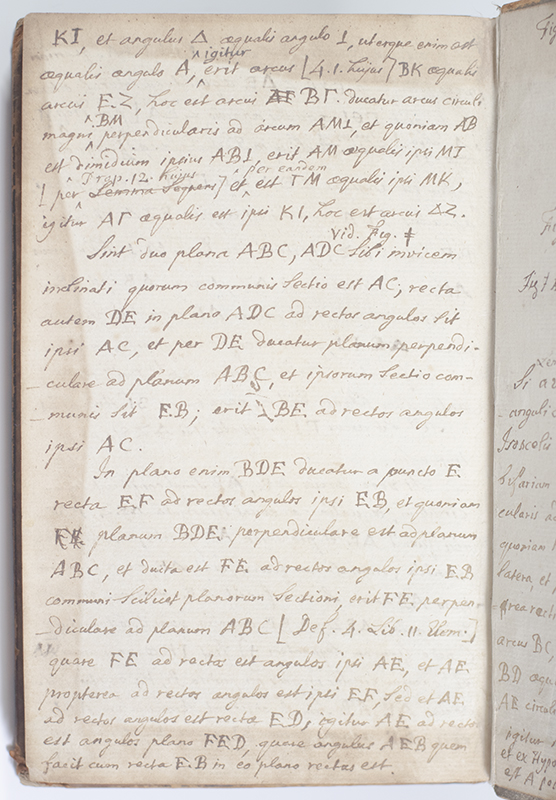 KI, et angulus Δ æqualis angulo I, uterque enim est
æqualis angulo A, igitur erit arcus [4.1. hujus] BK æqualis
arcui EZ, hoc est arcui BΓ. ducatur arcus circuli
magni BM perpendicularis ad arcum AMI, et quoniam AB
est dimidium ipsius ABI, erit AM æqualis ipsi MI
[per Prop. 12. hujus] et per eandem est ΓM æqualis ipsi MK,
igitur AΓ æqualis est ipsi KI, hoc est arcui ΔZ.
vid. Fig. ‡
Sint duo plana ABC, ADC sibi invicem
inclinati quorum communis sectio est AC; recta
autem DE in plano ADC ad rectos angulos sit
ipsi AC, et per DE ducatur planum perpendi-
culare ad planum ABC, et ipsorum sectio com-
munis sit EB; erit BE ad rectos angulos
ipsi AC.
In plano enim BDE ducatur a puncto E
recta EF ad rectos angulos ipsi EB, et quoniam
planum BDE perpendiculare est ad planum
ABC, et ducta est FE ad rectos angulos ipsi EB
communi scilicet planorum sectioni, erit FE perpen-
diculare ad planum ABC [Def. 4. Lib. 11. Elem.]
quare FE ad rectos est angulos ipsi AE, et AE
propterea ad rectos angulos est ipsi EF, sed et AE
ad rectos angulos est rectæ ED, igitur AE ad rectos
est angulos plano FED, quare angulus AEB quem
facit cum recta EB in eo plano rectus est.
Fig
Fig
Si a
anguli
Isoscelis
bifariam
cularis a
quoniam
latera, et
rect
arcus BC
BD æqu
AE circul
igitur
et ex Hypo
est A po